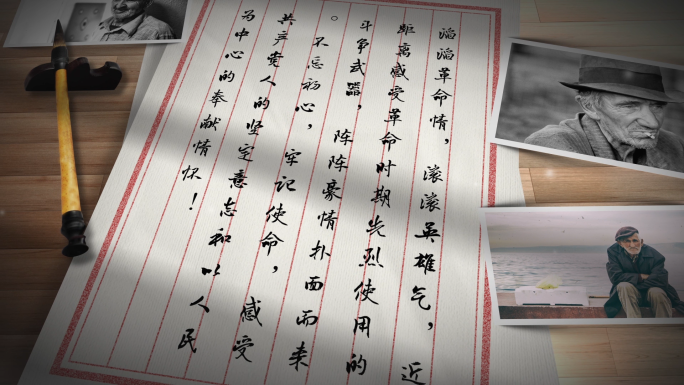 滔滔革命情，滚滚英雄气，近
距离感受革命时期先烈使用的
斗争武器，阵阵豪情扑面而来
。不忘初心，牢记使命，感受
共产党人的坚定意志和以人民
为中心的奉献情怀！